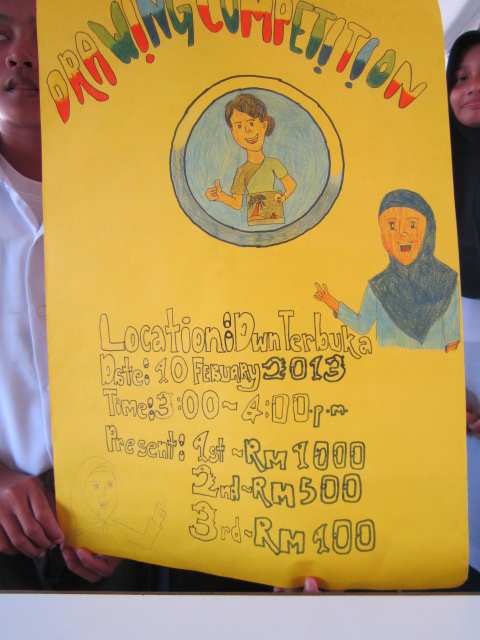 DRAWING COMPETITION
Location: Dwn Terbuka
Date: 10 FEBUARY 2013
Time: 3:00 ~ 4:00 p.m.
Present: 1st ~ RM 1000
2nd ~ RM 500
3rd ~ RM 100